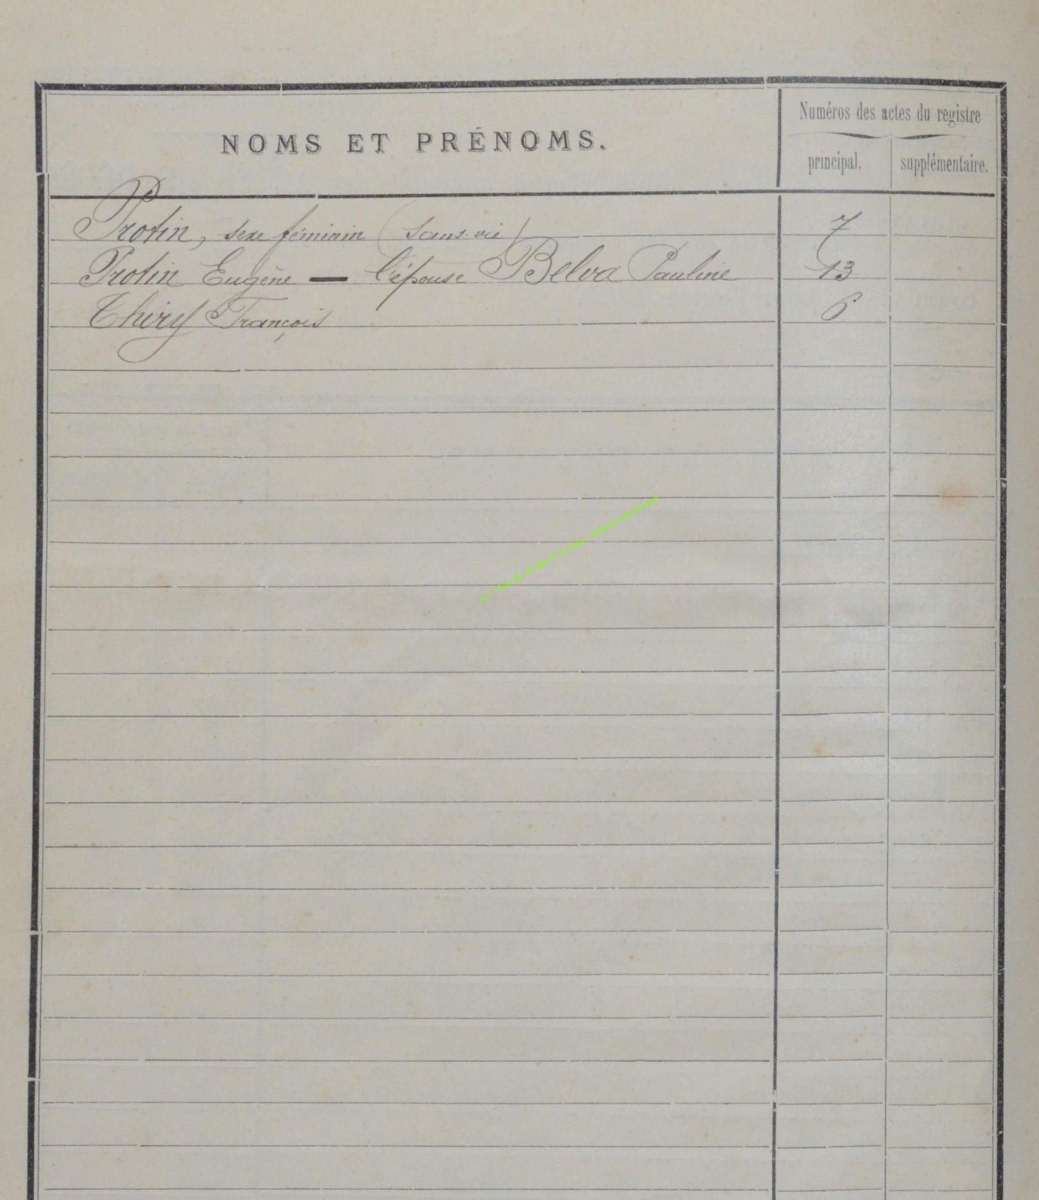 NOMS ET PRÉNOMS.
Numéros des actes du registre
principal. supplémentaire.
Protin, sexe féminin (sans vie) 7
Protin Eugène — l'épouse Belva Pauline 13
Thiry François 6